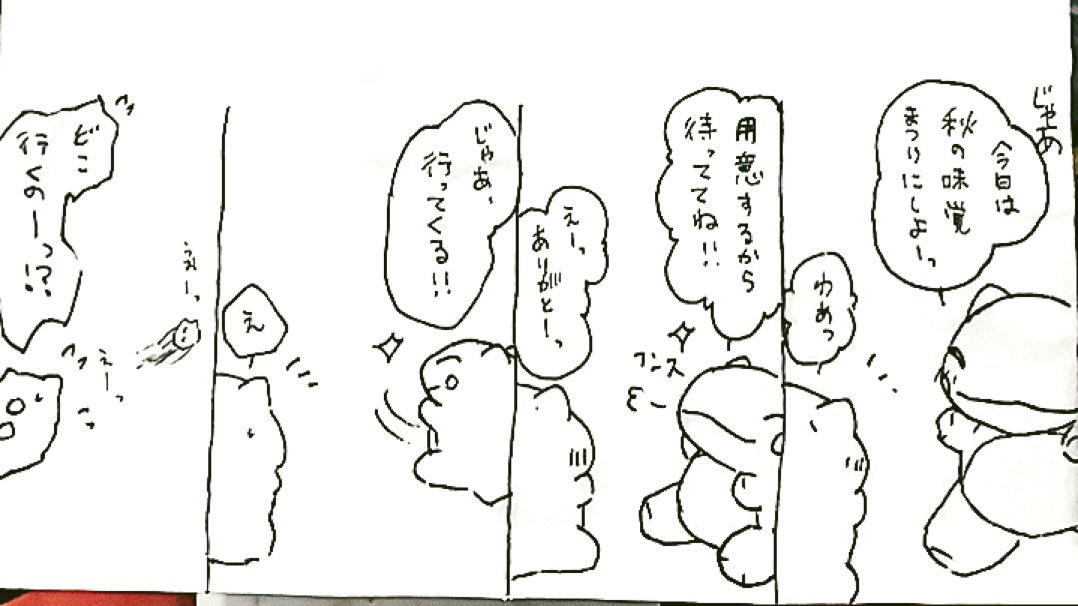 じゃあ
今日は
秋の味覚
まつりにしよーっ
わあっ
用意するから
待っててね!!
フンス
えーっ
ありがとーっ
じゃあ、
行ってくる!!
え
うえーっ
えーっ
どこ
行くのーっ!?